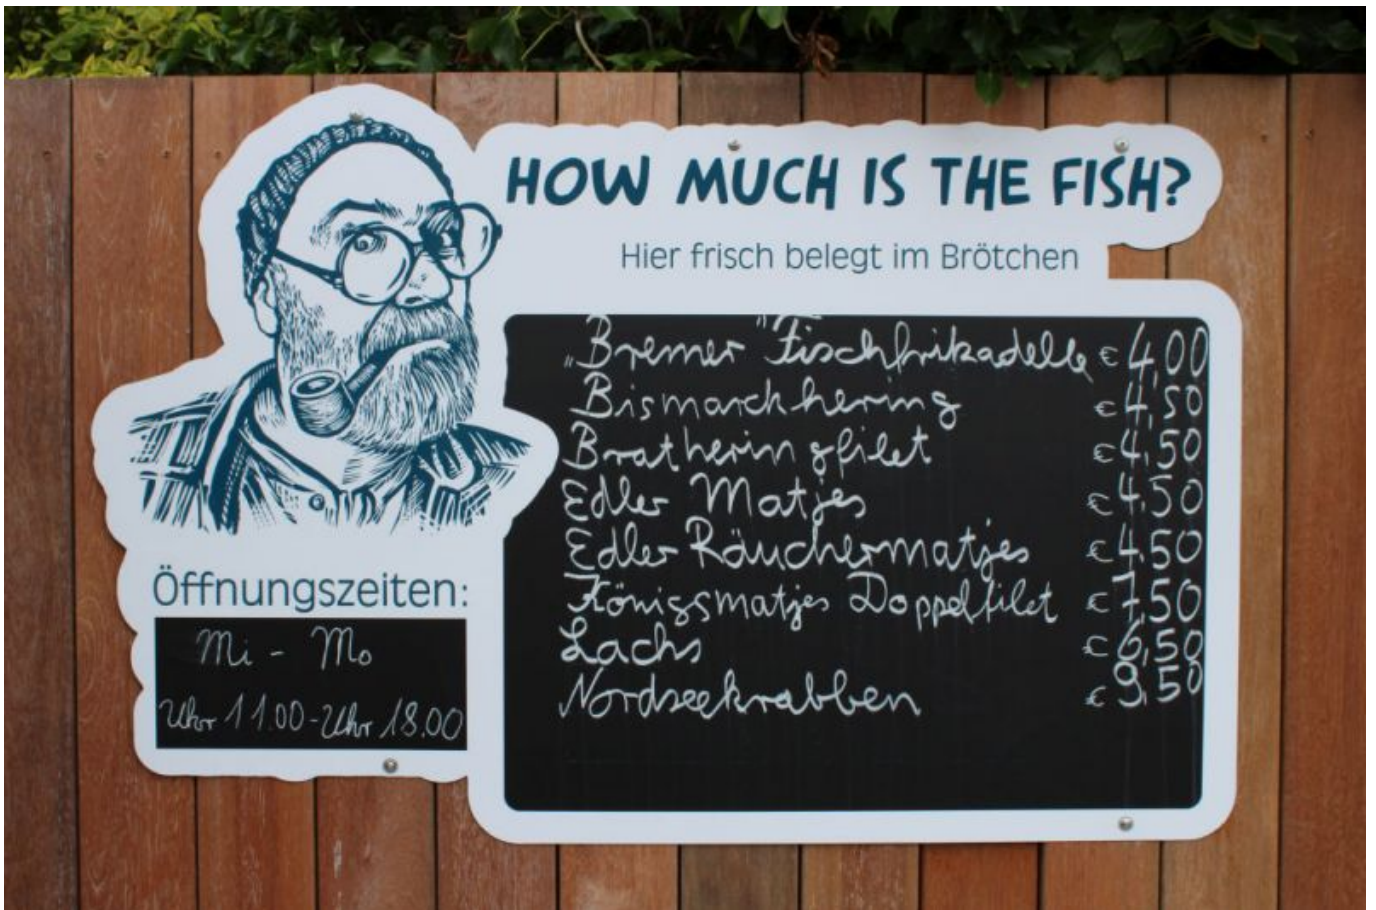 HOW MUCH IS THE FISH?
Hier frisch belegt im Brötchen
„Bremer" Fischfrikadelle € 4,00
Bismarckhering € 4,50
Bratheringsfilet € 4,50
Edler Matjes € 4,50
Edler Räuchermatjes € 4,50
Königsmatjes Doppelfilet € 7,50
Lachs € 6,50
Nordseekrabben € 9,50
Öffnungszeiten:
Mi - Mo
Uhr 11.00 - Uhr 18.00